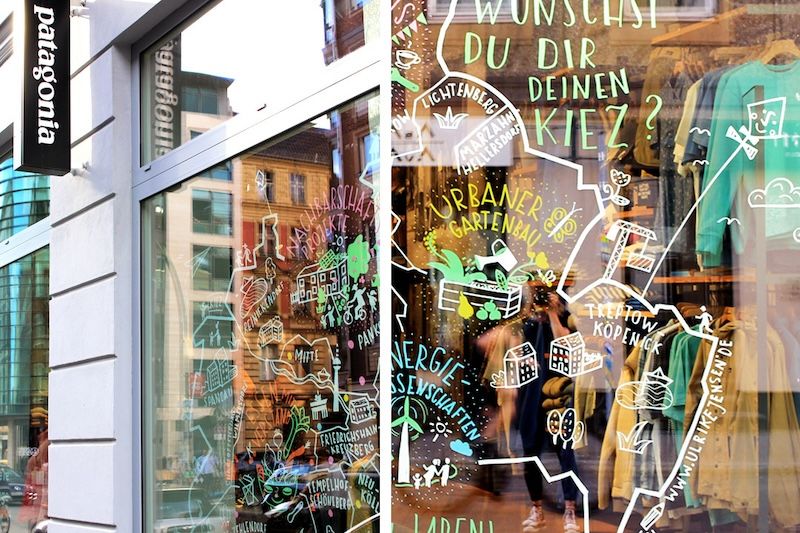 patagonia
NACHBARSCHAFTS
PROJEKTE
REINICKENDORF
MITTE
PANK
SPANDAU
FRIEDRICHSHAIN
KREUZBERG
TEMPELHOF
SCHÖNEBERG
NEU
KÖLL
EHLENDORF
WÜNSCHST
DU DIR
DEINEN
KIEZ?
LICHTENBERG
MARZAHN
HELLERSDORF
URBANER
GARTENBAU
TREPTOW
KÖPENICK
ENERGIE-
SSENSCHAFTEN
WWW.ULRIKEJENSEN.DE
LABEN!